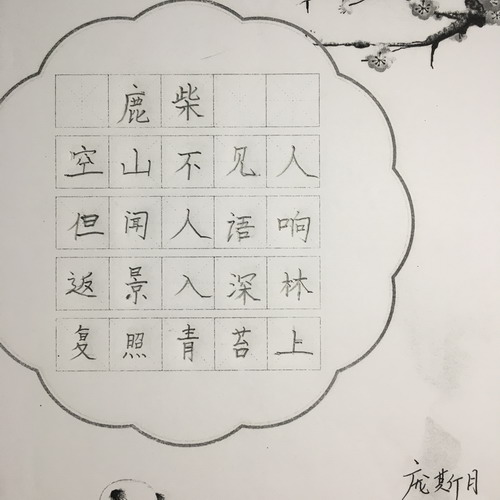 鹿柴
空山不见人
但闻人语响
返景入深林
复照青苔上
庞斯月